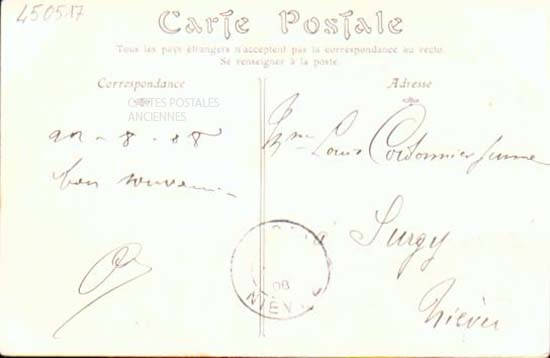 450517
Carte Postale
Tous les pays étrangers n'acceptent pas la correspondance au recto.
Se renseigner à la poste.
Correspondance
Adresse
CARTES POSTALES
ANCIENNES
- 8 - 08
bon souvenir
Mme Louis Cordonnier Jeune
Surgy
Nièvre
08
NIÈV